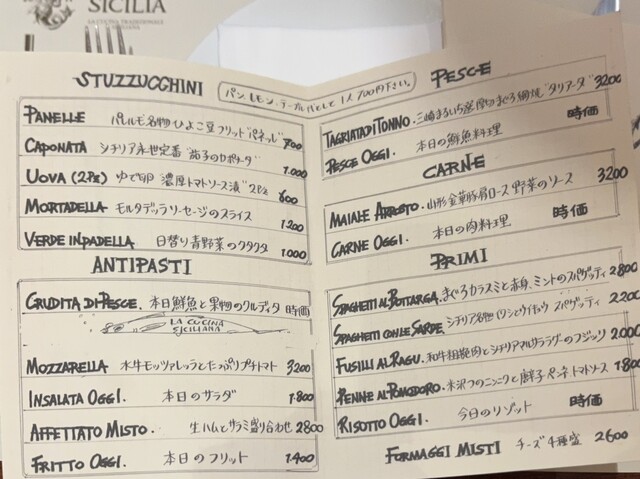 SICILIA
LA CUCINA TRADIZIONALE
STUZZUCCHINI
パン、レモン、テーブル代として 1人 700円下さい。
PANELLE パレルモ名物 ひよこ豆フリット"パネッレ" 700
CAPONATA シチリア永世定番 "茄子のカポナータ" 1.000
UOVA (2PZ) ゆで卵 濃厚トマトソース漬" 2Pz 600
MORTADELLA モルタデッラソーセージのスライス 1200
VERDE INPADELLA 日替り青野菜のクタクタ 1000
ANTIPASTI
CRUDITA DI PESCE. 本日鮮魚と果物のクルディタ 時価
LA CUCINA
SICILIANA
MOZZARELLA 水牛モッツァレッラとたっぷりプチトマト 3200
INSALATA OGGI. 本日のサラダ 1.800
AFFETTATO MISTO. 生ハムとサラミ盛り合わせ 2800
FRITTO OGGI. 本日のフリット 1.400
PESCE
TAGRIATA DI TONNO. 三崎まるいち産厚切まぐろ網焼"タリアータ" 3200
PESCE OGGI. 本日の鮮魚料理 時価
CARNE
MAIALE ARROSTO. 山形金華豚肩ロース 野菜のソース 3200
CARNE OGGI. 本日の肉料理 時価
PRIMI
SPAGHETTI AL BOTTARGA. まぐろカラスミと赤身、ミントのスパゲッティ 2800
SPAGHETTI CON LE SARDE. シチリア名物 イワシとウイキョウ スパゲッティ 2200
FUSILLI AL RAGU. 和牛粗挽肉とシチリアマルサララグーのフジッリ 2.000
PENNE AL POMODORO. 米沢つのニンニクと唐辛子 ペンネ トマトソース 1800
RISOTTO OGGI. 今日のリゾット 時価
FORMAGGI MISTI チーズ4種盛 2600